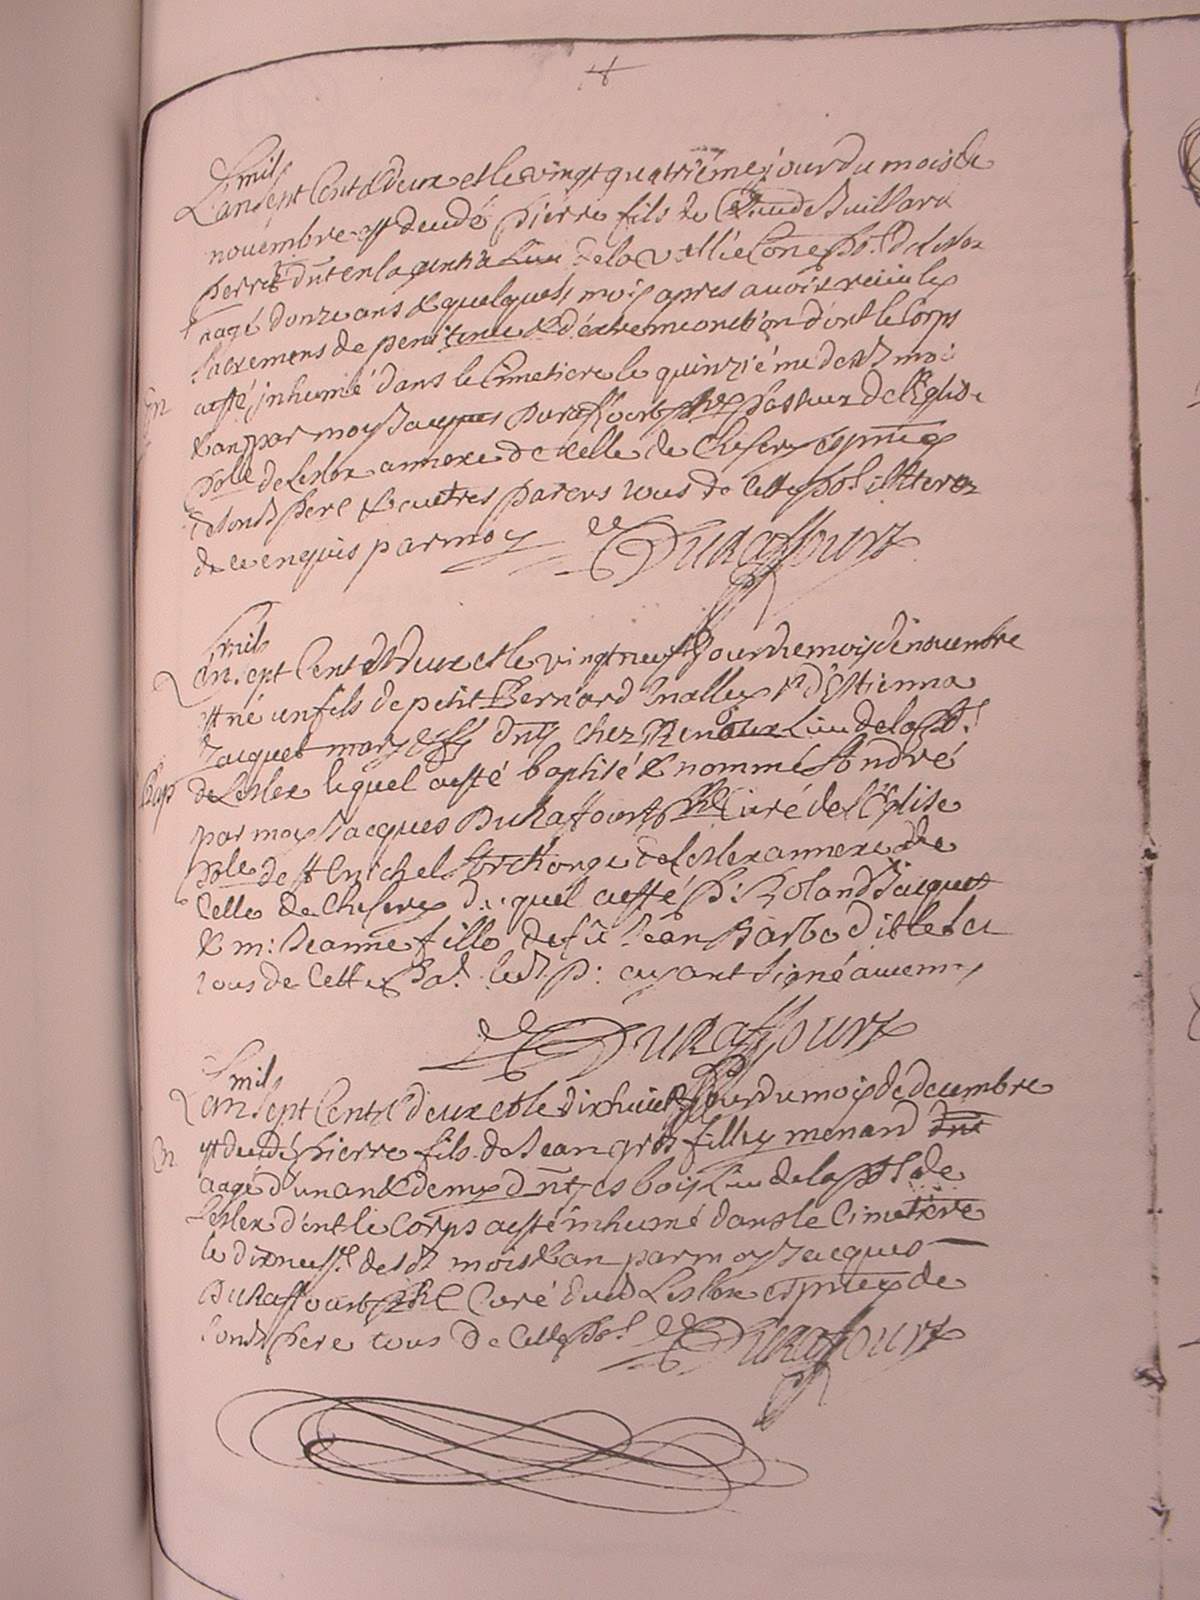 mil
L'an sept Cent & deux et le vingt quatriéme jour du mois de
novembre est decedé pierre fils de Claude Buillard
perret dnt en la lieu de la vallié Con parl. de Leslex
aagé d'onze ans & quelques mois apres avoir receu les
sacremens de penitence & d'extremeonction dont le Corps
en
a esté inhumé dans le Cimetiere le quinziéme desd. moi
& an par moy Jacques Duraffourt pbre pasteur de l'Eglise
polle de Leslex annexe de celle de Chesery es pnces
de sond. pere & autres parens tous de cette pol. illiterez
de ce enquis par moy Duraffourt
mil
L'an sept Cent et deux et le vingt neuf jour du mois de novembre
est né un fils de petit Bernard & d'Estienna
Jacquet mariez dntz chez Renoux Lieu de la pol.
Bap
de Leslex lequel a esté baptisé & nommé André
par moy Jacques Duraffourt pbre Curé de l'Eglise
polle de St Michel Archange de Leslex annexe de
celle de Chesery duquel a esté P: Roland Jacquet
& m: Jeanne fille de fû Jean Barbe
tous de cette pol. led. P: ayant signé avec moy
Duraffourt
mil
L'an sept Cent & deux et le dixhuict jour du mois de decembre
en
est decedé pierre fils de Jean gros filliz menand dnt
aagé d'un an & demy dnt es bois Lieu de la pol de
Leslex dont le Corps a esté inhumé dans le Cimetiere
le dixneuf. desd. mois & an par moy Jacques
Duraffourt pbre Curé dud Leslex es pnces de
sond. pere tous de cette pol. Duraffourt